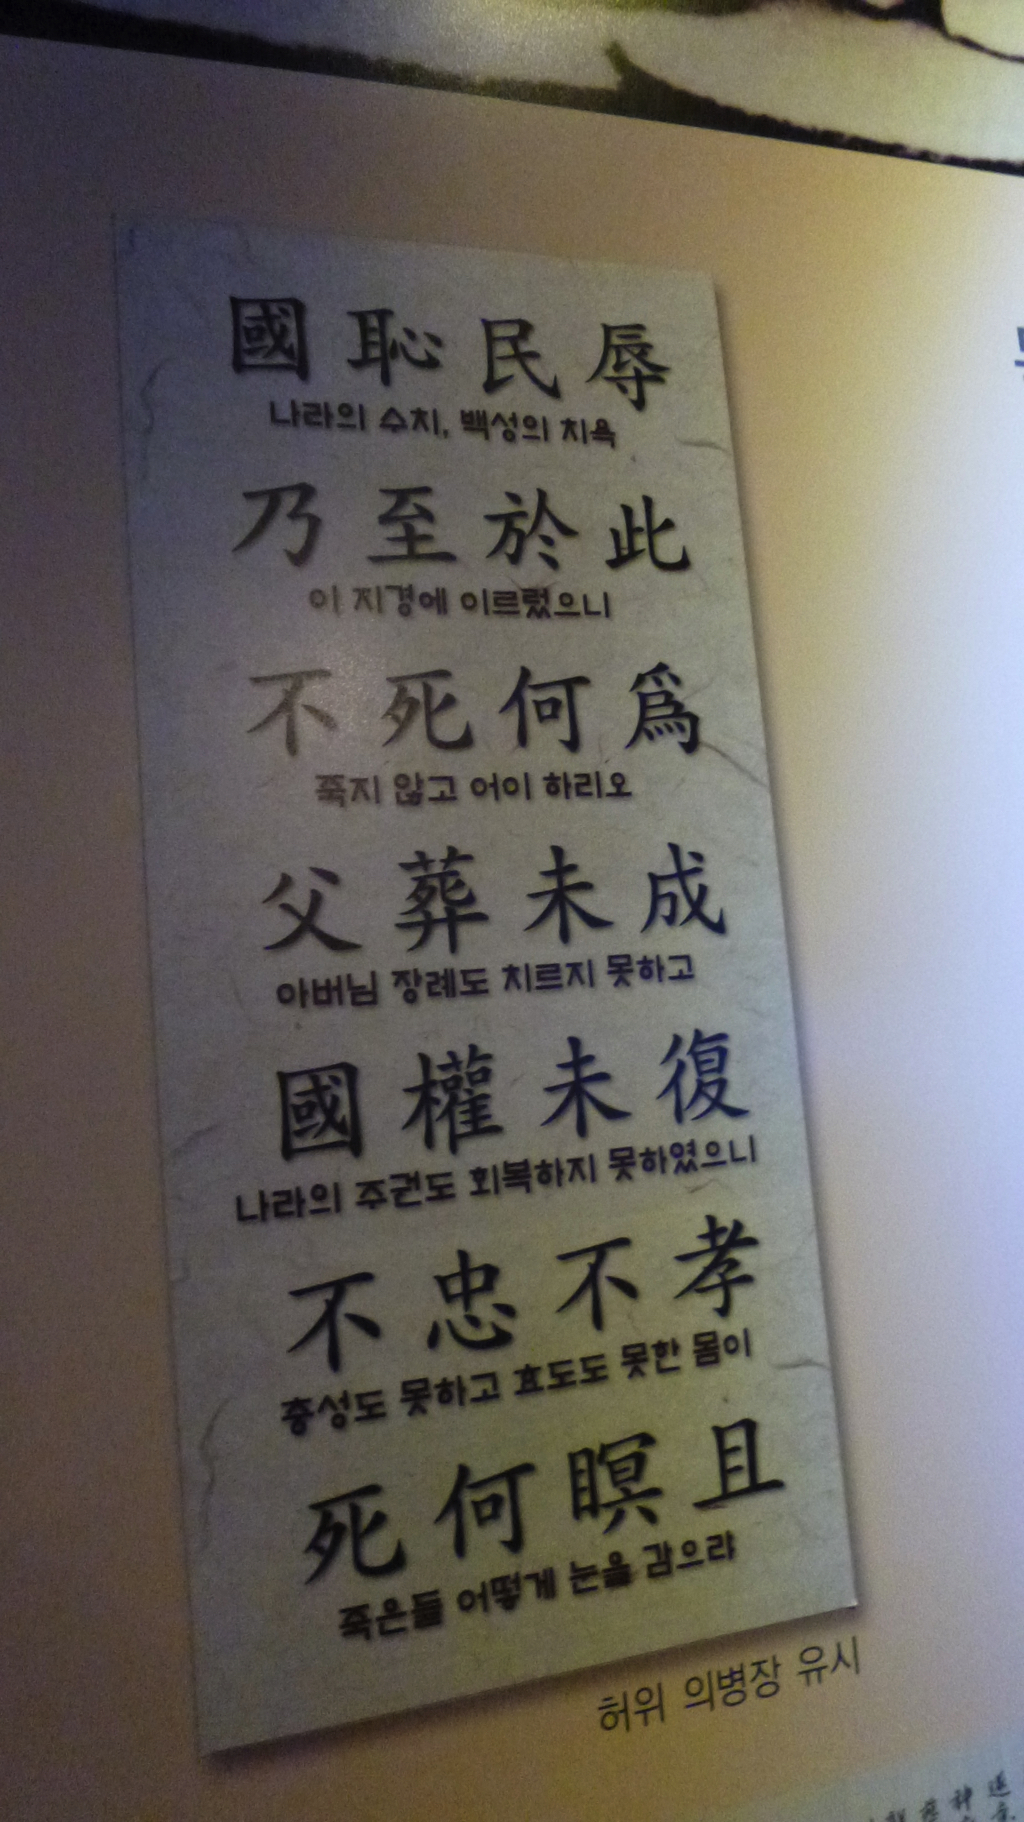 國恥民辱
나라의 수치, 백성의 치욕
乃至於此
이 지경에 이르렀으니
不死何爲
죽지 않고 어이 하리오
父葬未成
아버님 장례도 치르지 못하고
國權未復
나라의 주권도 회복하지 못하였으니
不忠不孝
충성도 못하고 효도도 못한 몸이
死何瞑且
죽은들 어떻게 눈을 감으랴
허위 의병장 유시